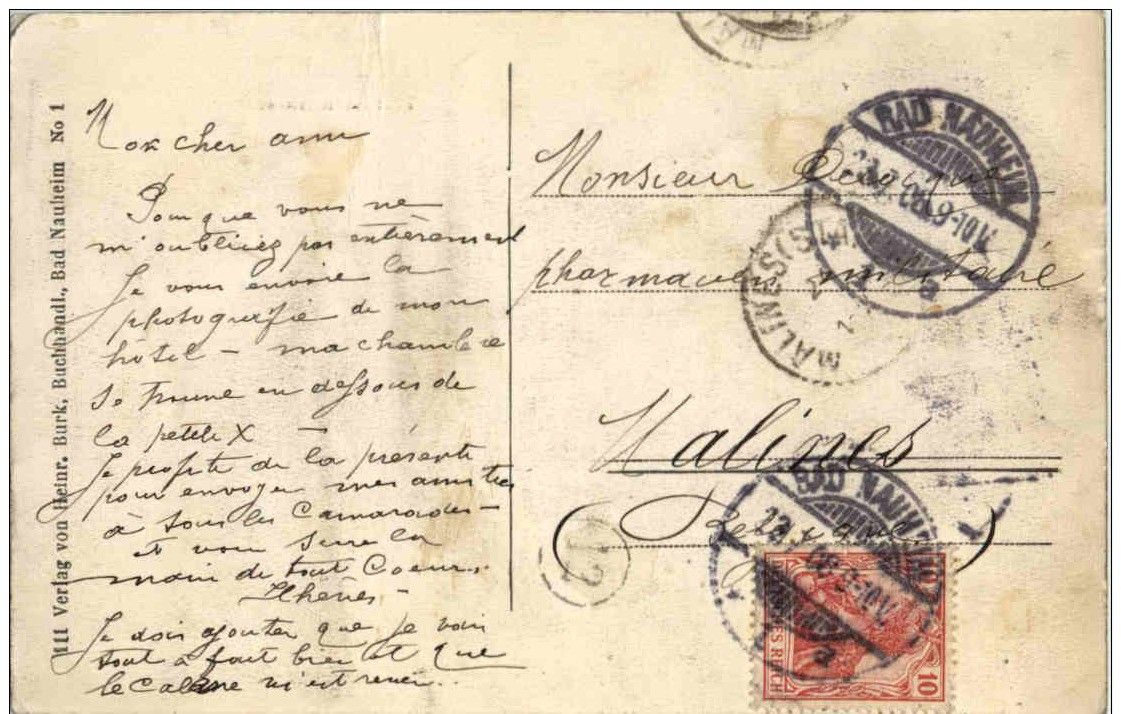 111 Verlag von Heinr. Burk, Buchhandl., Bad Nauheim No 1
Mon cher ami
Pour que vous ne
m'oubliiez pas entièrement
Je vous envoie la
photogrifie de mon
hôtel — ma chambre
se trouve en dessous de
la petite X —
Je profite de la présente
pour envoyer mes amitiés
à tous les Camarades —
et vous serre la
main de tout Coeur.
Je dois ajouter que je vais
tout à fait bien et que
le calme m'est revenu.
Monsieur
pharmacien militaire
Malines
(Belgique)
BAD NAUHEIM
9-10V.
a
MALINES (STATION)
BAD NAUHEIM
9-10V.
a
DEUTSCHES REICH
10
10